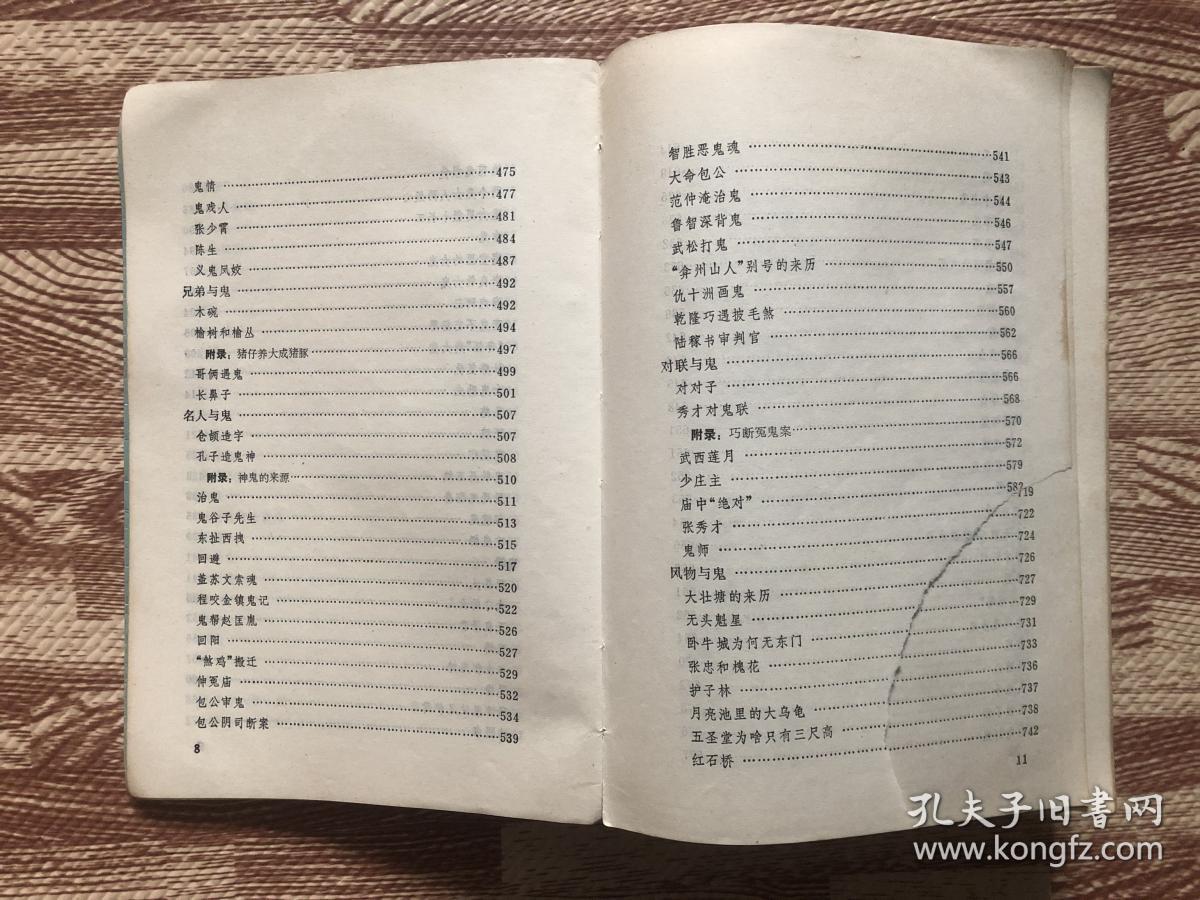 鬼情……475
鬼戏人……477
张少霄……481
陈生……484
义鬼凤姣……487
兄弟与鬼……492
木碗……492
榆树和榆丛……494
附录：猪仔养大成猪豚……497
哥俩遇鬼……499
长鼻子……501
名人与鬼……507
仓颉造字……507
孔子造鬼神……508
附录：神鬼的来源……510
治鬼……511
鬼谷子先生……513
东扯西拽……515
回避……517
盖苏文索魂……520
程咬金镇鬼记……522
鬼帮赵匡胤……526
回阳……527
“煞鸡”搬迁……529
伸冤庙……532
包公审鬼……534
包公阴司断案……539
8
智胜恶鬼魂……541
大命包公……543
范仲淹治鬼……544
鲁智深背鬼……546
武松打鬼……547
“弇州山人”别号的来历……550
仇十洲画鬼……557
乾隆巧遇披毛煞……560
陆稼书审判官……562
对联与鬼……566
对对子……566
秀才对鬼联……568
附录：巧断冤鬼案……570
武西莲月……572
少庄主……579
庙中“绝对”……582
719
张秀才……722
鬼师……724
风物与鬼……726
大壮塘的来历……727
无头魁星……729
卧牛城为何无东门……731
张忠和槐花……733
护子林……736
月亮池里的大乌龟……737
五圣堂为啥只有三尺高……738
红石桥……742
11
孔夫子旧書网
www.kongfz.com